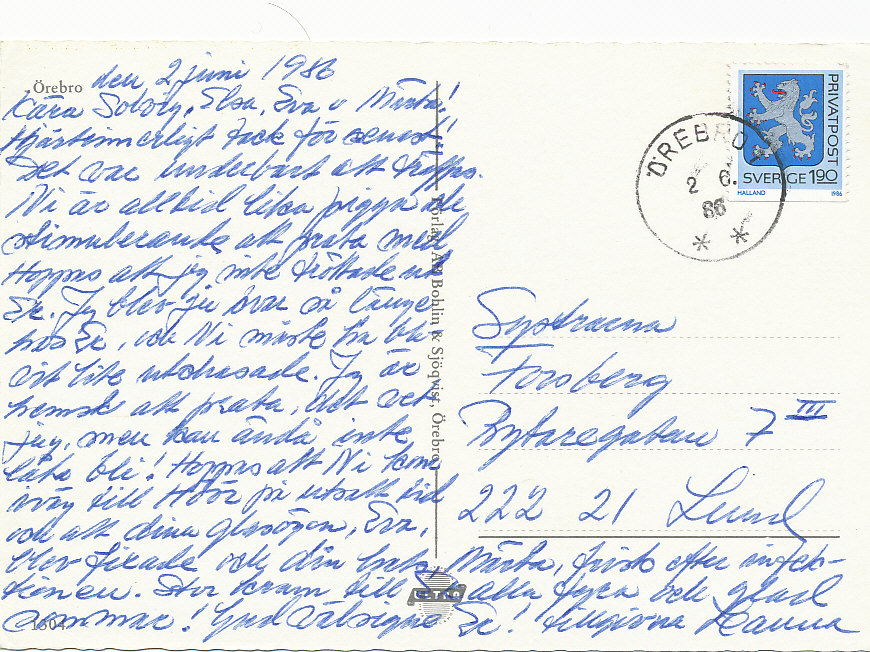 Örebro den 2 juni 1986
Kära Solvig, Elsa, Eva o Märta!
Hjärtinnerligt tack för senast!!
Det var underbart att träffas.
Ni är alltid lika pigga och
stimulerande att prata med
Hoppas att jag inte tröttade ut
Er. Jag blev ju kvar så länge
hos Er, och Ni måste ha bli
vit lite utchasade. Jag är
hemsk att prata, det vet
jag, men kan ändå inte
låta bli! Hoppas att Ni kom
iväg till Höör på utsatt tid
och att dina glasögon, Eva,
blev fixade och Märta, frisk efter infek-
tionen. Stor kram till Er alla fyra och glad
sommar! Gud välsigne Er! tillgivna Hanna
1304
Förlag: AB Bohlin & Sjöqvist, Örebro
ÖREBRO 1
2 6.
86
PRIVATPOST
SVERIGE 1.90
HALLAND 1986
Systrarna
Forsberg
Bytaregatan 7 III
222 21 Lund